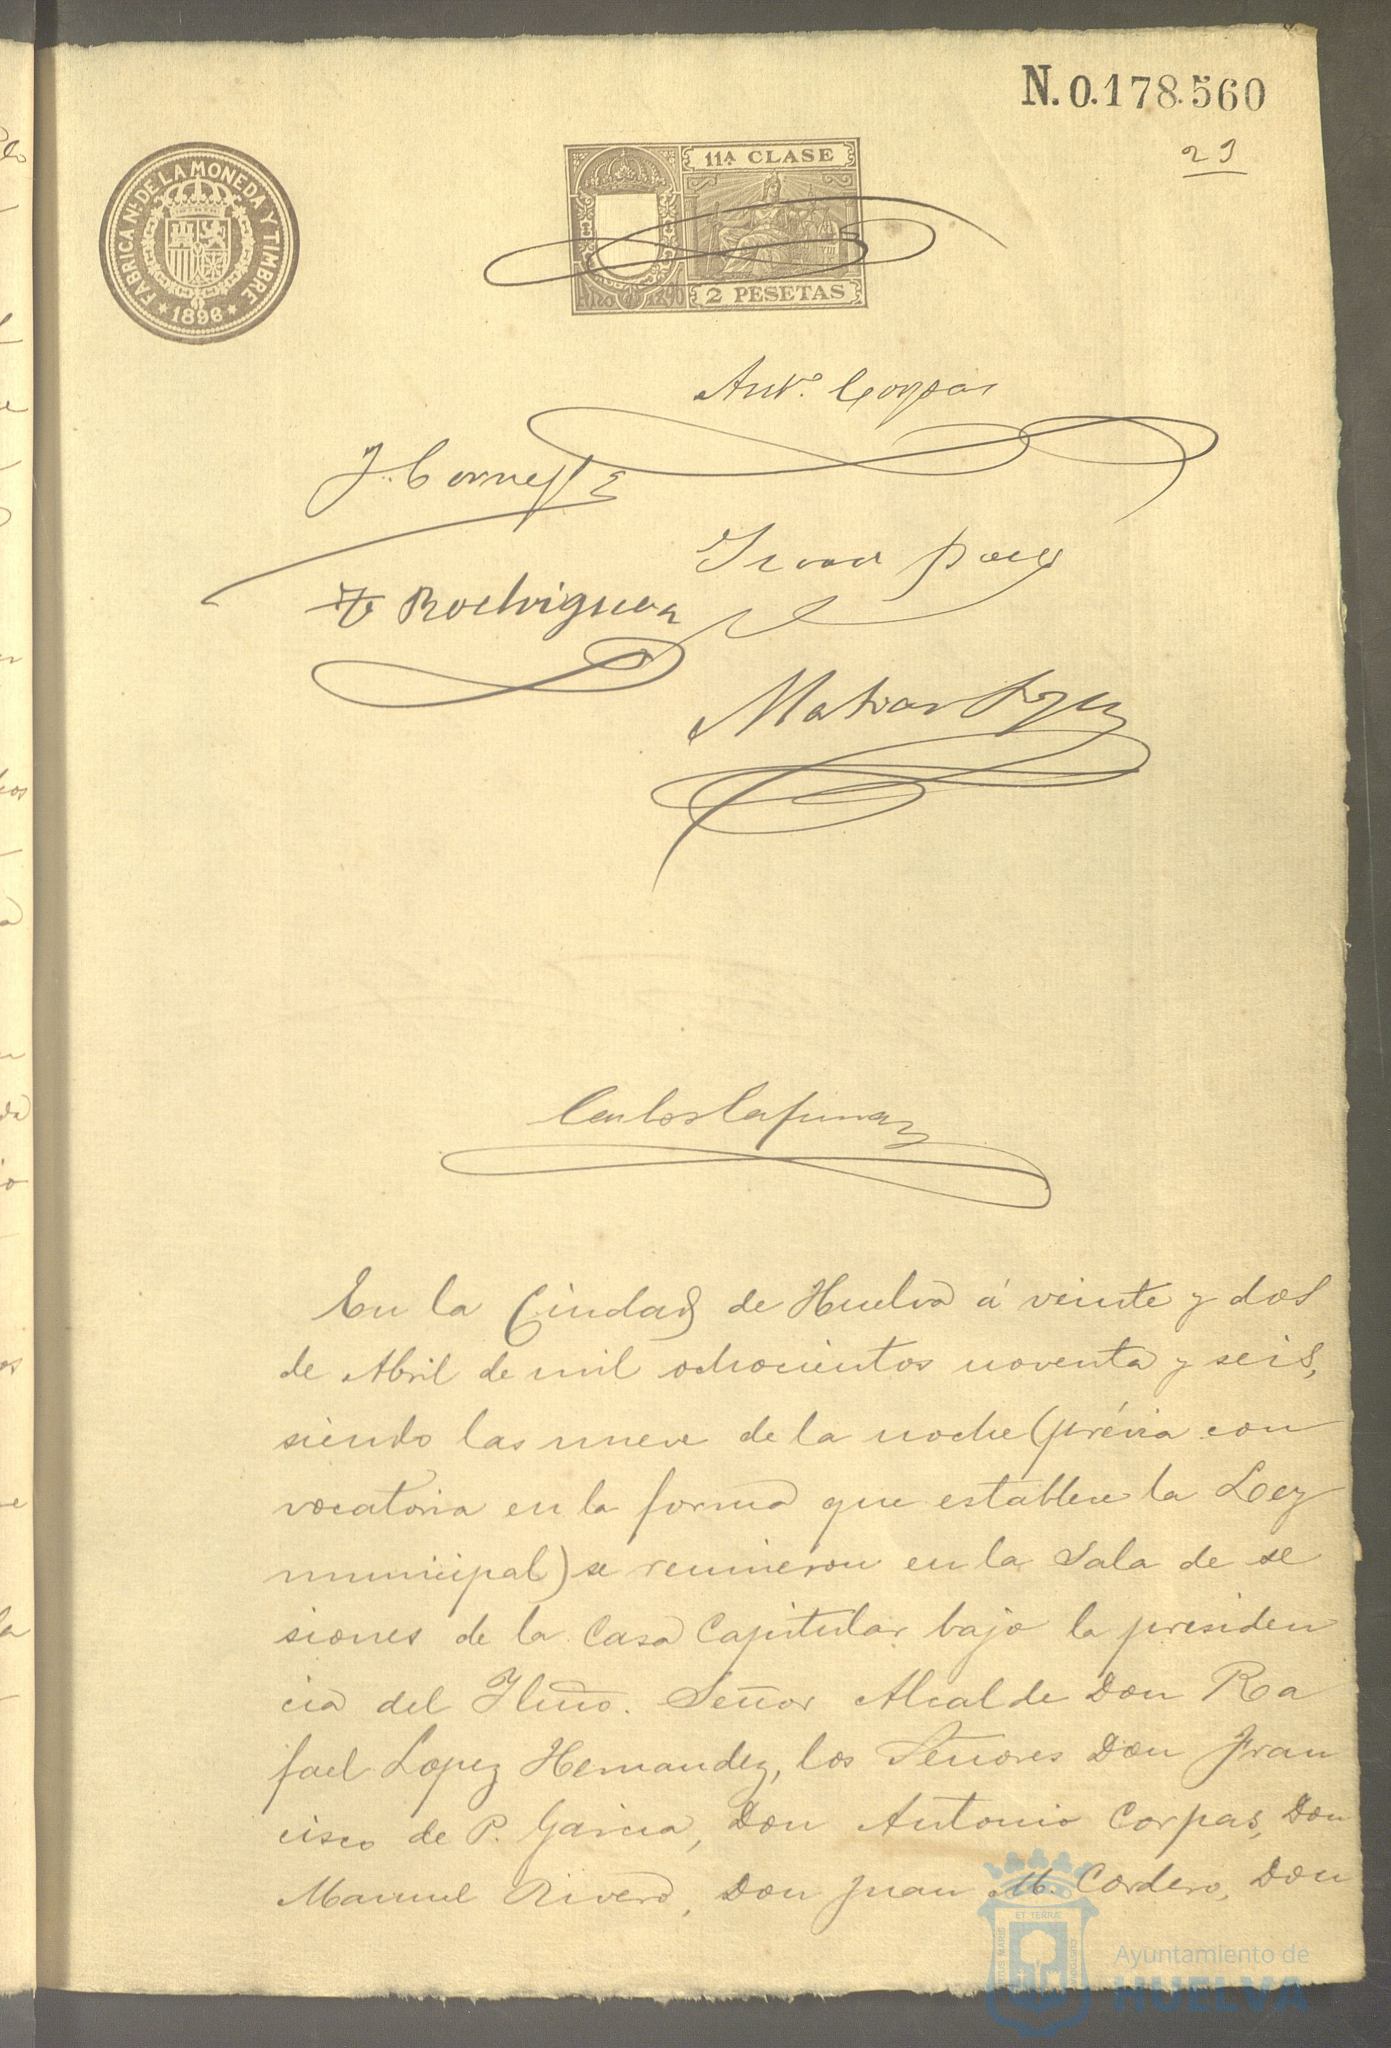 N. 0.178.560
29
FABRICA NL. DE LA MONEDA Y TIMBRE
* 1896 *
11ª CLASE
2 PESETAS
Antº. Corpas
J. Cornejo
F Rodriguez
Matias Lopez
Carlos Lafuna
En la Ciudad de Huelva á veinte y dos
de Abril de mil ochocientos noventa y seis,
siendo las nueve de la noche (prévia con
vocatoria en la forma que establece la Ley
municipal) se reunieron en la Sala de se
siones de la Casa Capitular bajo la presiden
cia del Yllmo. Señor Alcalde Don Ra
fael Lopez Hernandez, los Señores Don Fran
cisco de P. Garcia, Don Antonio Corpas, Don
Manuel Rivero, Don Juan M. Cordero, Don
ET TERRÆ
Ayuntamiento de
HUELVA